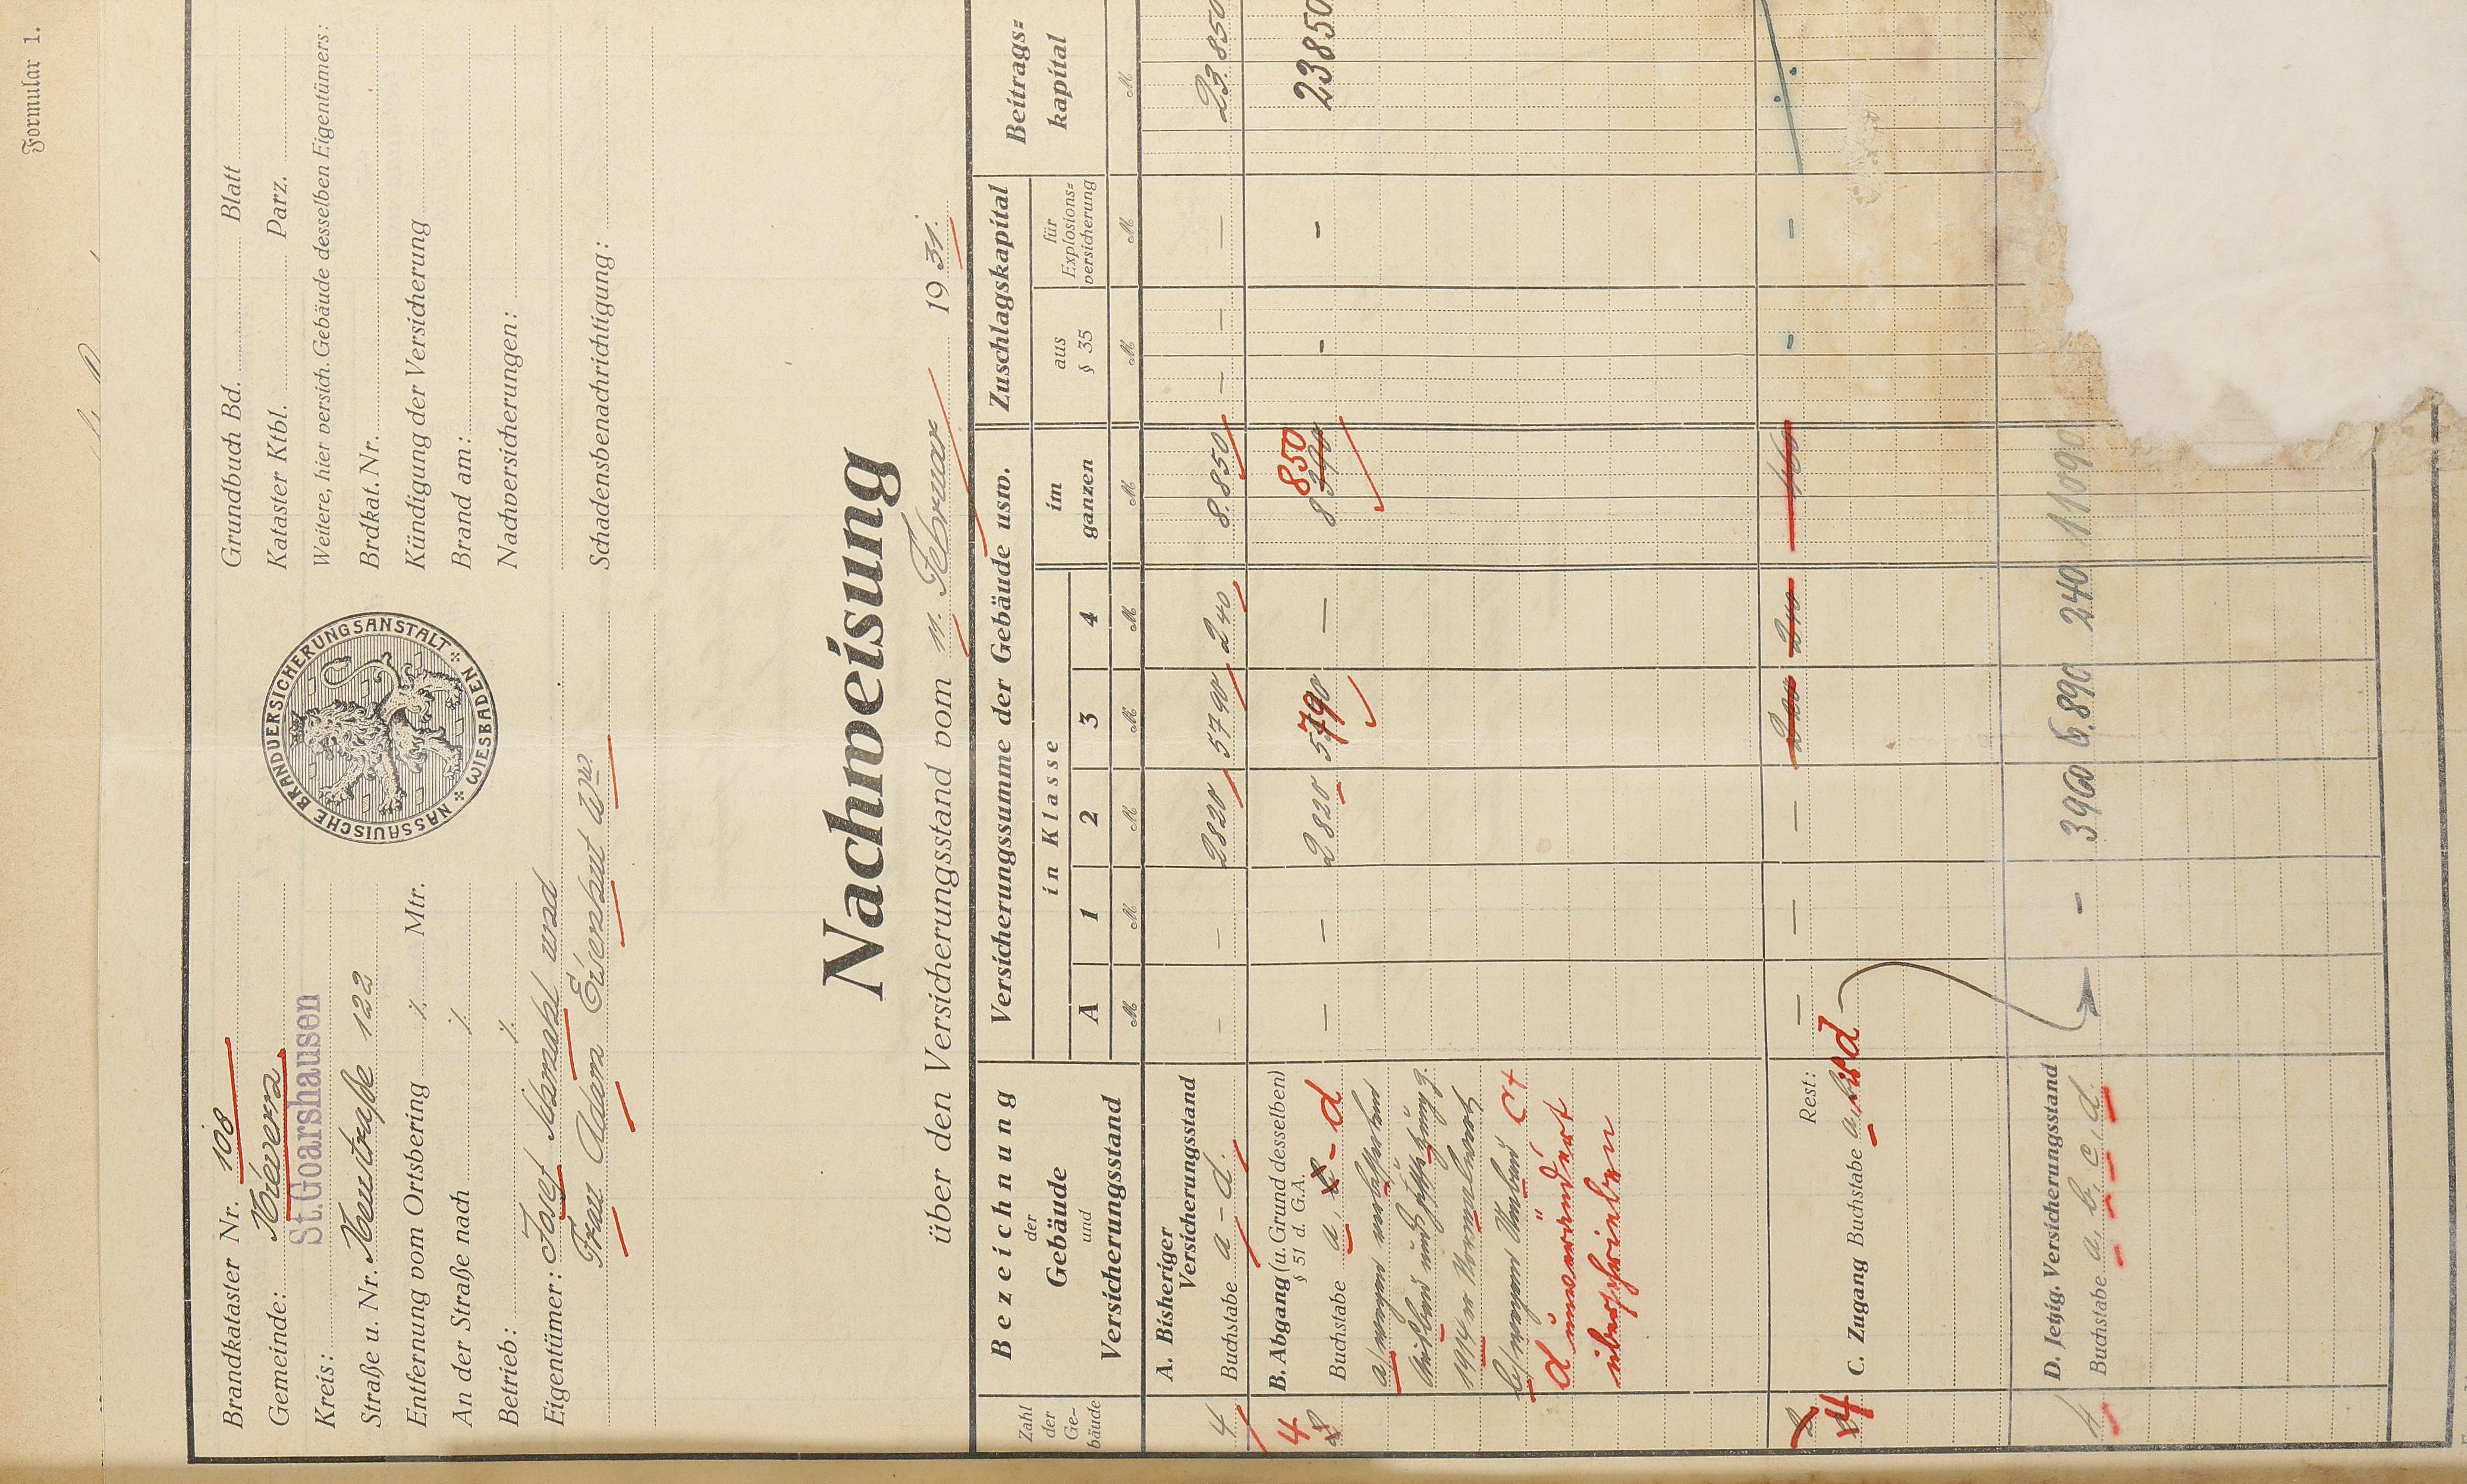 Formular 1.
Brandkataster Nr. 108
Gemeinde: Nievern
Kreis: St. Goarshausen
Straße u. Nr. Neustraße 122
Entfernung vom Ortsbering ./. Mtr.
An der Straße nach ./.
Betrieb: ./.
Eigentümer: Josef und
Frau Adam Eisenhut Ww.
NASSAUISCHE BRANDVERSICHERUNGSANSTALT WIESBADEN
Grundbuch Bd. Blatt
Kataster Ktbl. Parz.
Weitere, hier versich. Gebäude desselben Eigentümers:
Brdkat. Nr.
Kündigung der Versicherung
Brand am:
Nachversicherungen:
Schadensbenachrichtigung:
Nachweisung
über den Versicherungsstand vom 11. Februar 1931.
Zahl der Ge-bäude
Bezeichnung der Gebäude und Versicherungsstand
Versicherungssumme der Gebäude usw.
in Klasse
A 1 2 3 4
im ganzen
Zuschlagskapital
aus § 35
für Explosions-versicherung
Beitrags-kapital
M M M M M M M M M
A. Bisheriger
Versicherungsstand
4 Buchstabe a - d. – – 2820 5790 240 8.850 – – – 23850
B. Abgang (u. Grund desselben)
§ 51 d. G.A.
4 850
2 Buchstabe a, b - d – – 2820 5790 – 8390 - - 23850
a) wegen
und
b) wegen Umbau c +
d unverändert
überschrieben
2 Rest: – – – 200 240 460 - - ./.
4 C. Zugang Buchstabe a, bis d
D. Jetzig. Versicherungsstand
4 Buchstabe a, b, c, d. - 3960 6.890 240 11090